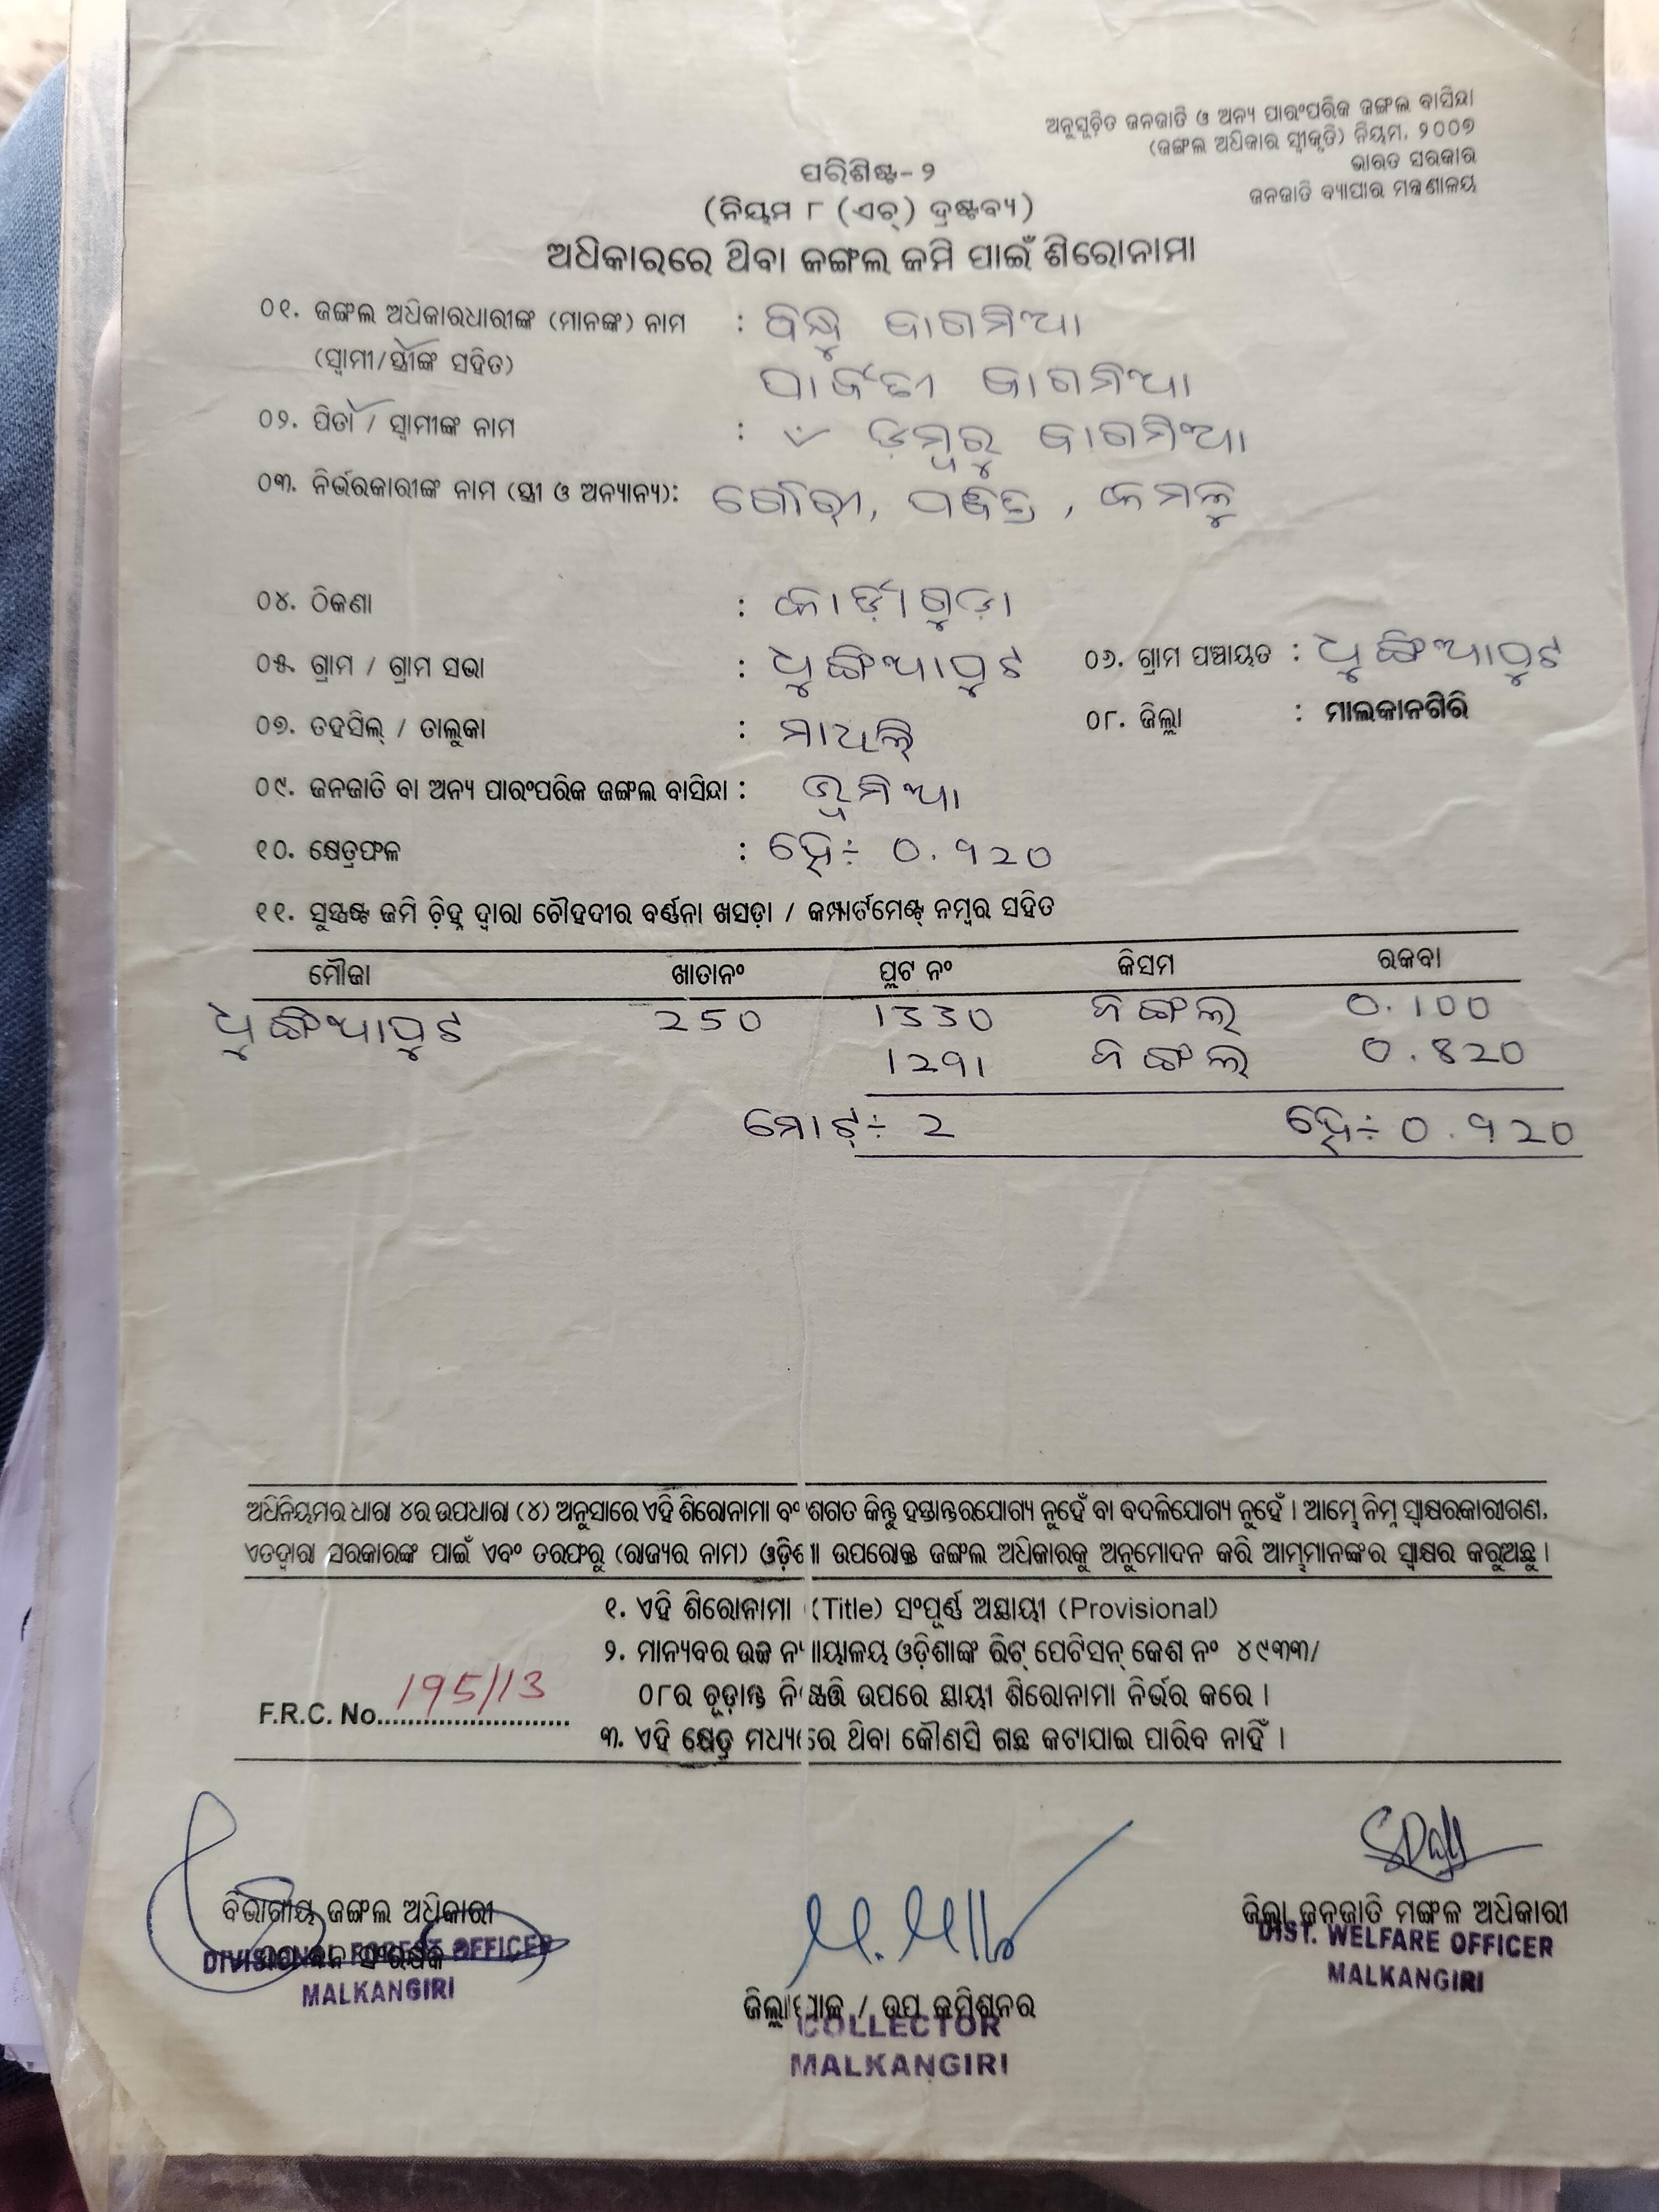 ଅନୁସୂଚିତ ଜନଜାତି ଓ ଅନ୍ୟ ପାରଂପରିକ ଜଙ୍ଗଲ ବାସିନ୍ଦା
(ଜଙ୍ଗଲ ଅଧିକାର ସ୍ୱୀକୃତି) ନିୟମ, ୨୦୦୭
ଭାରତ ସରକାର
ଜନଜାତି ବ୍ୟାପାର ମନ୍ତ୍ରଣାଳୟ
ପରିଶିଷ୍ଟ- ୨
(ନିୟମ ୮ (ଏଚ୍) ଦ୍ରଷ୍ଟବ୍ୟ)
ଅଧିକାରରେ ଥିବା ଜଙ୍ଗଲ ଜମି ପାଇଁ ଶିରୋନାମା
୦୧. ଜଙ୍ଗଲ ଅଧିକାରଧାରୀଙ୍କ (ମାନଙ୍କ) ନାମ : ବିନ୍ଧୁ ବାଗମିଆ
(ସ୍ୱାମୀ/ସ୍ତ୍ରୀଙ୍କ ସହିତ) ପାର୍ବତୀ ବାଗମିଆ
୦୨. ପିତା / ସ୍ୱାମୀଙ୍କ ନାମ : ଡମ୍ବରୁ ବାଗମିଆ
୦୩. ନିର୍ଭରକାରୀଙ୍କ ନାମ (ସ୍ତ୍ରୀ ଓ ଅନ୍ୟାନ୍ୟ): ଗୌରୀ, ପବିତ୍ର, କମଳୁ
୦୪. ଠିକଣା : କାର୍ଡ଼ାଗୁଡ଼ା
୦୫. ଗ୍ରାମ / ଗ୍ରାମ ସଭା : ଧୁଙ୍ଗିଆପୁଟ ୦୬. ଗ୍ରାମ ପଞ୍ଚାୟତ : ଧୁଙ୍ଗିଆପୁଟ
୦୭. ତହସିଲ୍ / ତାଲୁକା : ମାଥିଲି ୦୮. ଜିଲ୍ଲା : ମାଲକାନଗିରି
୦୯. ଜନଜାତି ବା ଅନ୍ୟ ପାରଂପରିକ ଜଙ୍ଗଲ ବାସିନ୍ଦା : ଭୂମିଆ
୧୦. କ୍ଷେତ୍ରଫଳ : ହେ÷ 0.920
୧୧. ସୁସ୍ପଷ୍ଟ ଜମି ଚିହ୍ନ ଦ୍ୱାରା ଚୌହଦୀର ବର୍ଣ୍ଣନା ଖସଡ଼ା / କମ୍ପାର୍ଟମେଣ୍ଟ୍ ନମ୍ବର ସହିତ
ମୌଜା ଖାତାନଂ ପ୍ଲଟ ନଂ କିସମ ରକବା
ଧୁଙ୍ଗିଆପୁଟ 250 1330 ଜଙ୍ଗଲ 0.100
1291 ଜଙ୍ଗଲ 0.820
ମୋଟ୍÷ 2 ହେ÷ 0.920
ଅଧିନିୟମର ଧାରା ୪ର ଉପଧାରା (୪) ଅନୁସାରେ ଏହି ଶିରୋନାମା ବଂଶଗତ କିନ୍ତୁ ହସ୍ତାନ୍ତରଯୋଗ୍ୟ ନୁହେଁ ବା ବଦଳିଯୋଗ୍ୟ ନୁହେଁ । ଆମ୍ଭେ ନିମ୍ନ ସ୍ୱାକ୍ଷରକାରୀଗଣ,
ଏତଦ୍ୱାରା ସରକାରଙ୍କ ପାଇଁ ଏବଂ ତରଫରୁ (ରାଜ୍ୟର ନାମ) ଓଡ଼ିଶା ଉପରୋକ୍ତ ଜଙ୍ଗଲ ଅଧିକାରକୁ ଅନୁମୋଦନ କରି ଆମ୍ଭମାନଙ୍କର ସ୍ୱାକ୍ଷର କରୁଅଛୁ ।
୧. ଏହି ଶିରୋନାମା (Title) ସଂପୂର୍ଣ୍ଣ ଅସ୍ଥାୟୀ (Provisional)
୨. ମାନ୍ୟବର ଉଚ୍ଚ ନ୍ୟାୟାଳୟ ଓଡ଼ିଶାଙ୍କ ରିଟ୍ ପେଟିସନ୍ କେଶ ନଂ ୪୯୩୩/
୦୮ର ଚୂଡ଼ାନ୍ତ ନିଷ୍ପତ୍ତି ଉପରେ ସ୍ଥାୟୀ ଶିରୋନାମା ନିର୍ଭର କରେ ।
F.R.C. No. 195/13
୩. ଏହି କ୍ଷେତ୍ର ମଧ୍ୟରେ ଥିବା କୌଣସି ଗଛ କଟାଯାଇ ପାରିବ ନାହିଁ ।
ବିଭାଗୀୟ ଜଙ୍ଗଲ ଅଧିକାରୀ
DIVISIONAL FOREST OFFICER
MALKANGIRI
ଜିଲ୍ଲାପାଳ / ଉପ କମିଶନର
COLLECTOR
MALKANGIRI
ଜିଲ୍ଲା ଜନଜାତି ମଙ୍ଗଳ ଅଧିକାରୀ
DIST. WELFARE OFFICER
MALKANGIRI